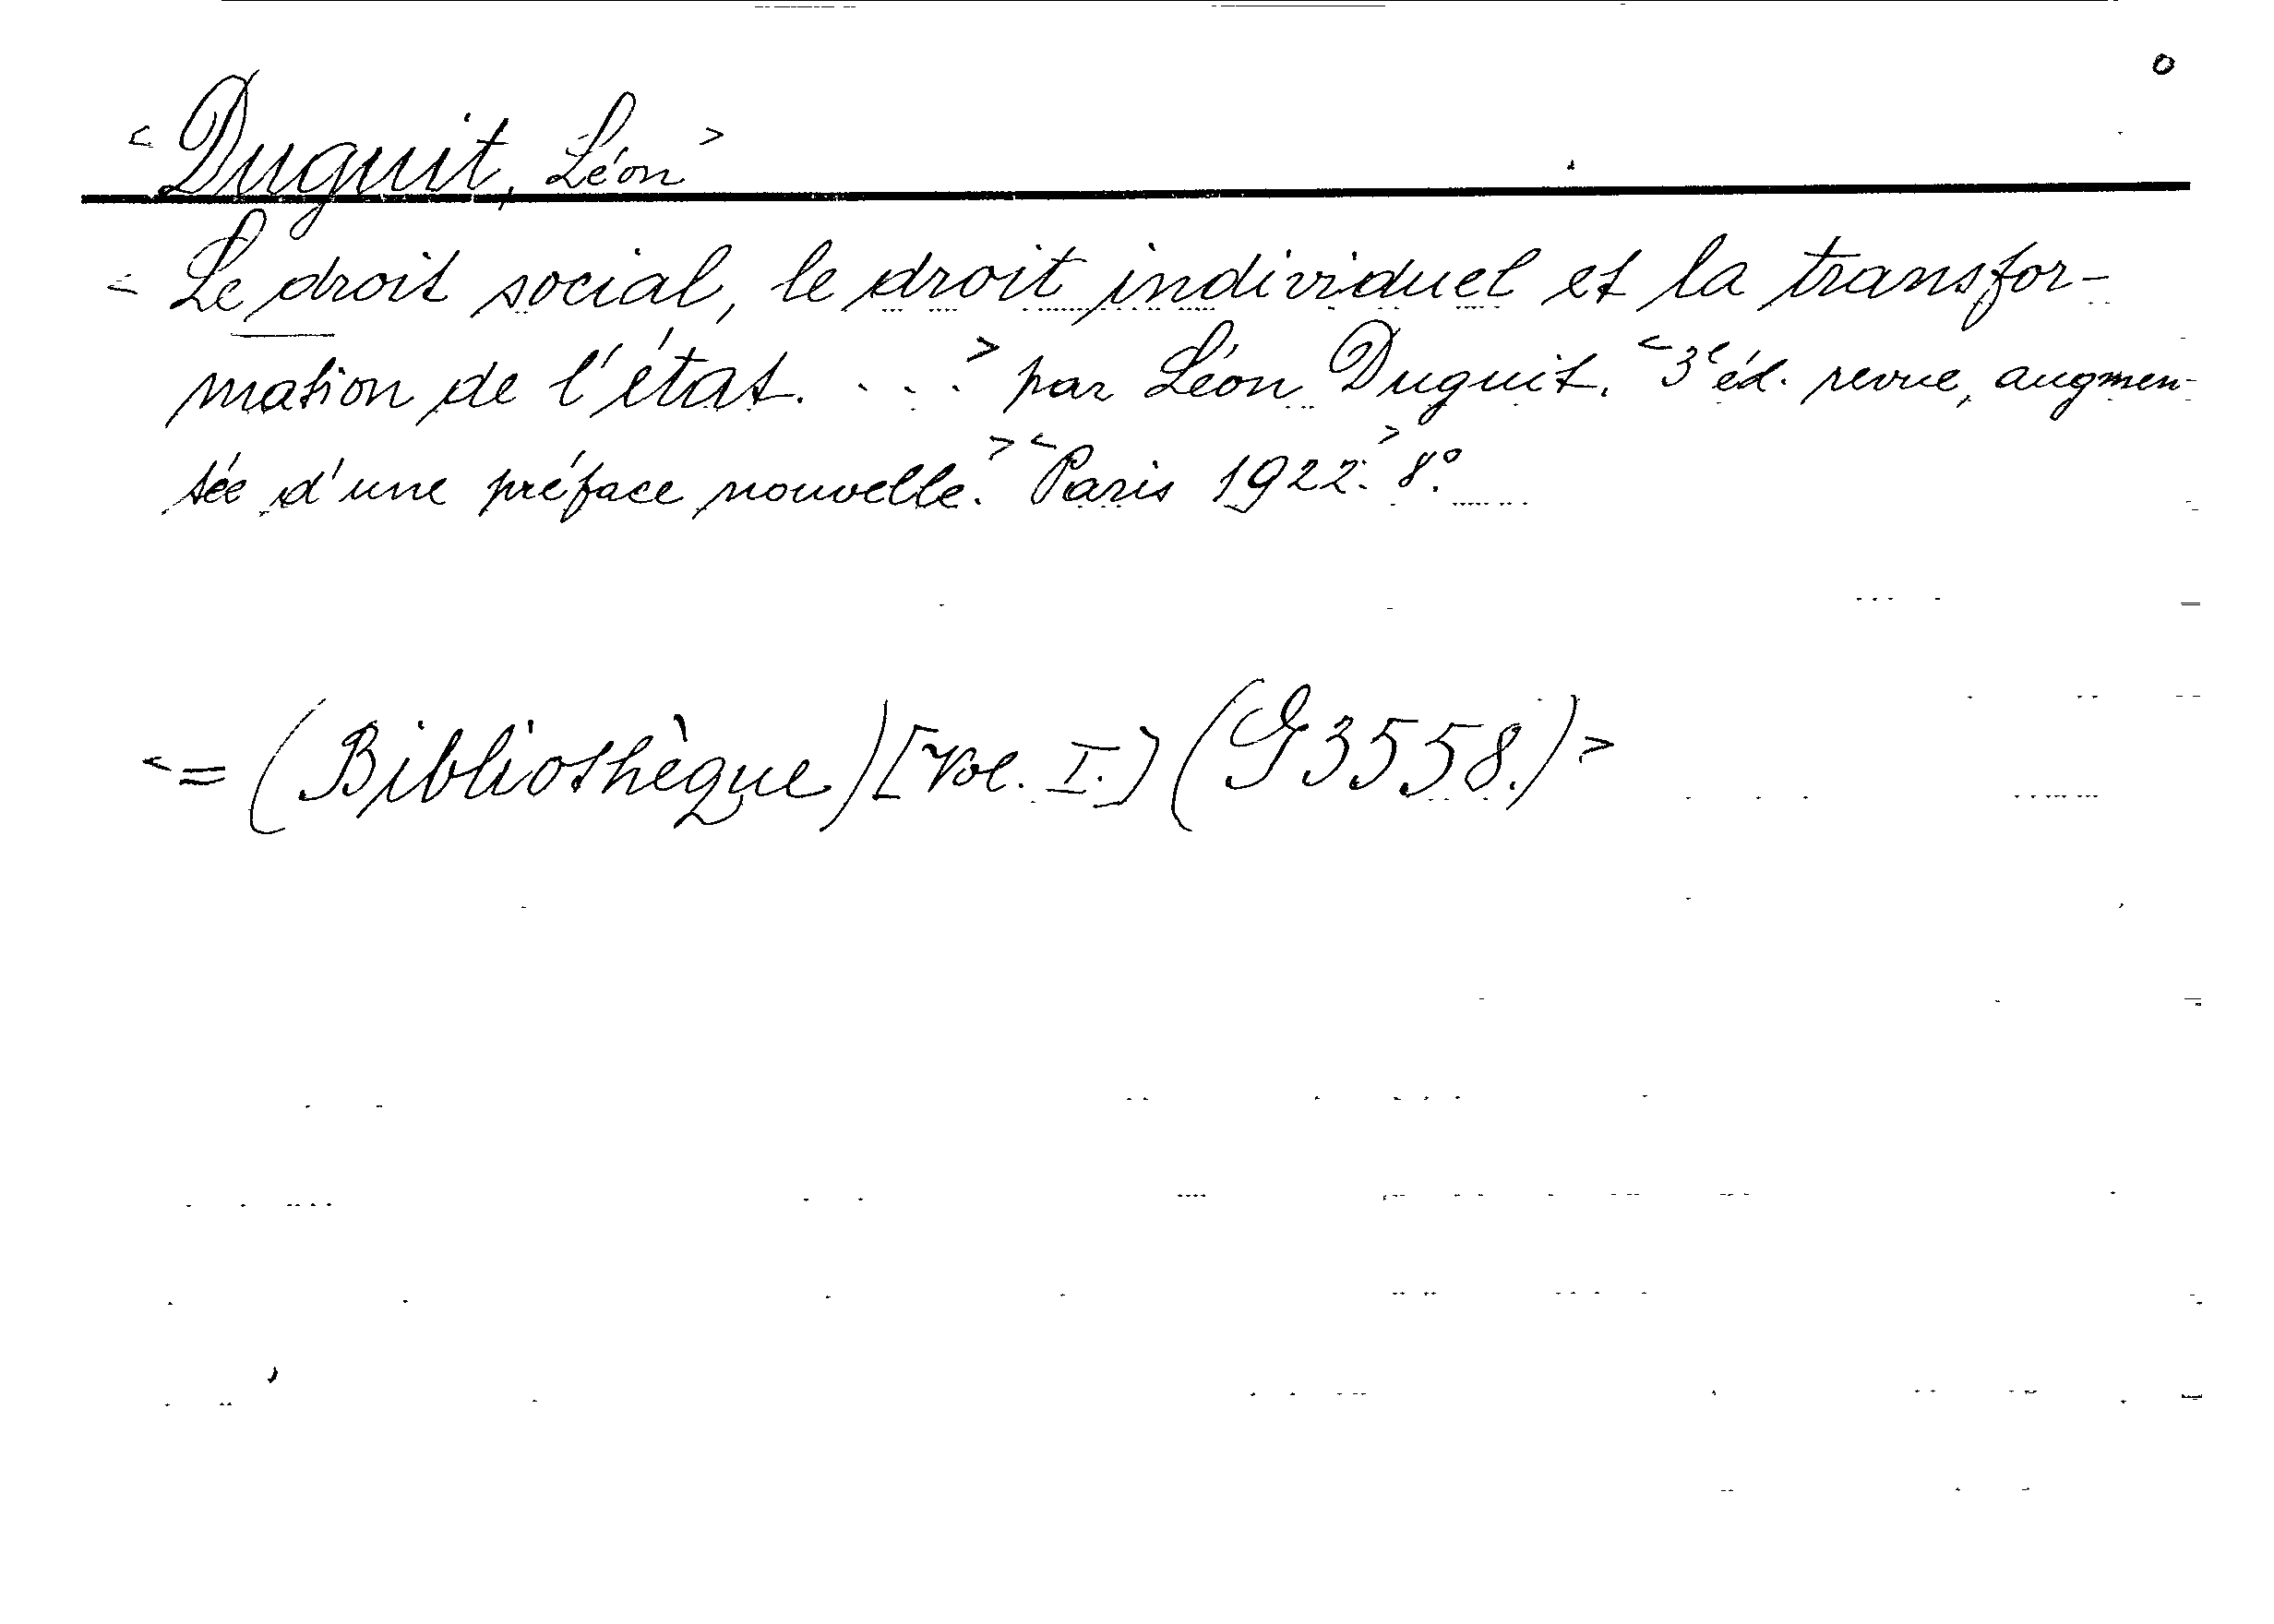 o
< Duguit, Léon >
< Le droit social, le droit individuel et la transfor-
mation de l'état. . . . > par Léon Duguit. < 3e éd. revue, augmen-
tée d'une préface nouvelle. > < Paris 1922. > 8°.
< = (Bibliothèque) [Vol. I.] (G3558.) >